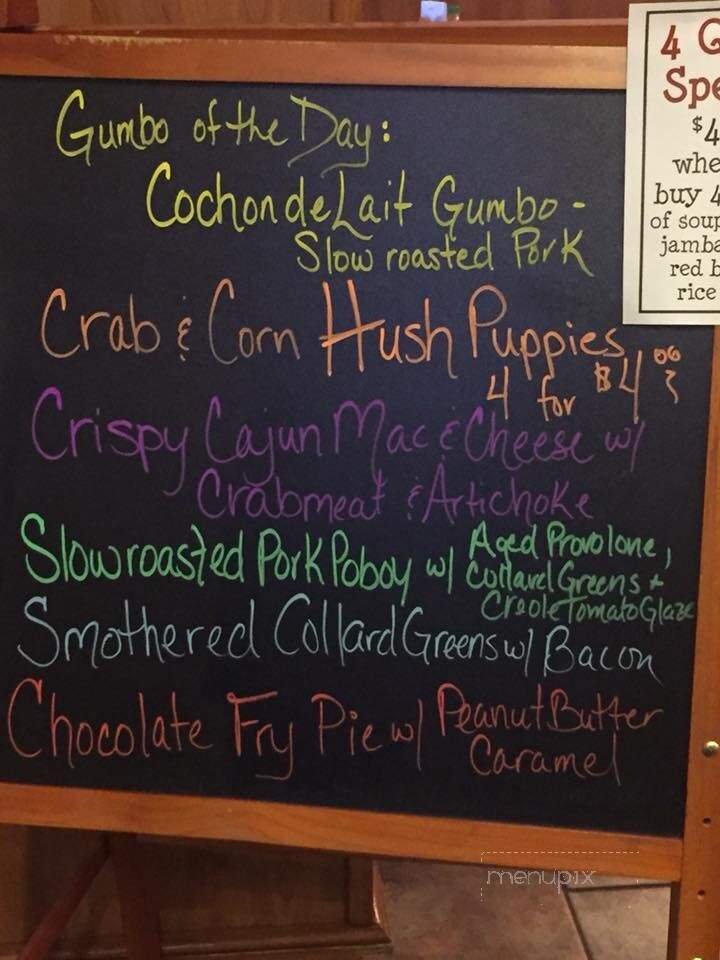 Gumbo of the Day:
Cochon de Lait Gumbo -
Slow roasted Pork
Crab & Corn Hush Puppies
4 for $4.00
Crispy Cajun Mac & Cheese w/
Crabmeat & Artichoke
Slow roasted Pork Poboy w/ Aged Provolone,
Collard Greens +
Creole Tomato Glaze
Smothered Collard Greens w/ Bacon
Chocolate Fry Pie w/ Peanut Butter
Caramel
4
Spe
$4
whe
buy 4
of soup
jamba
red b
rice
menupix